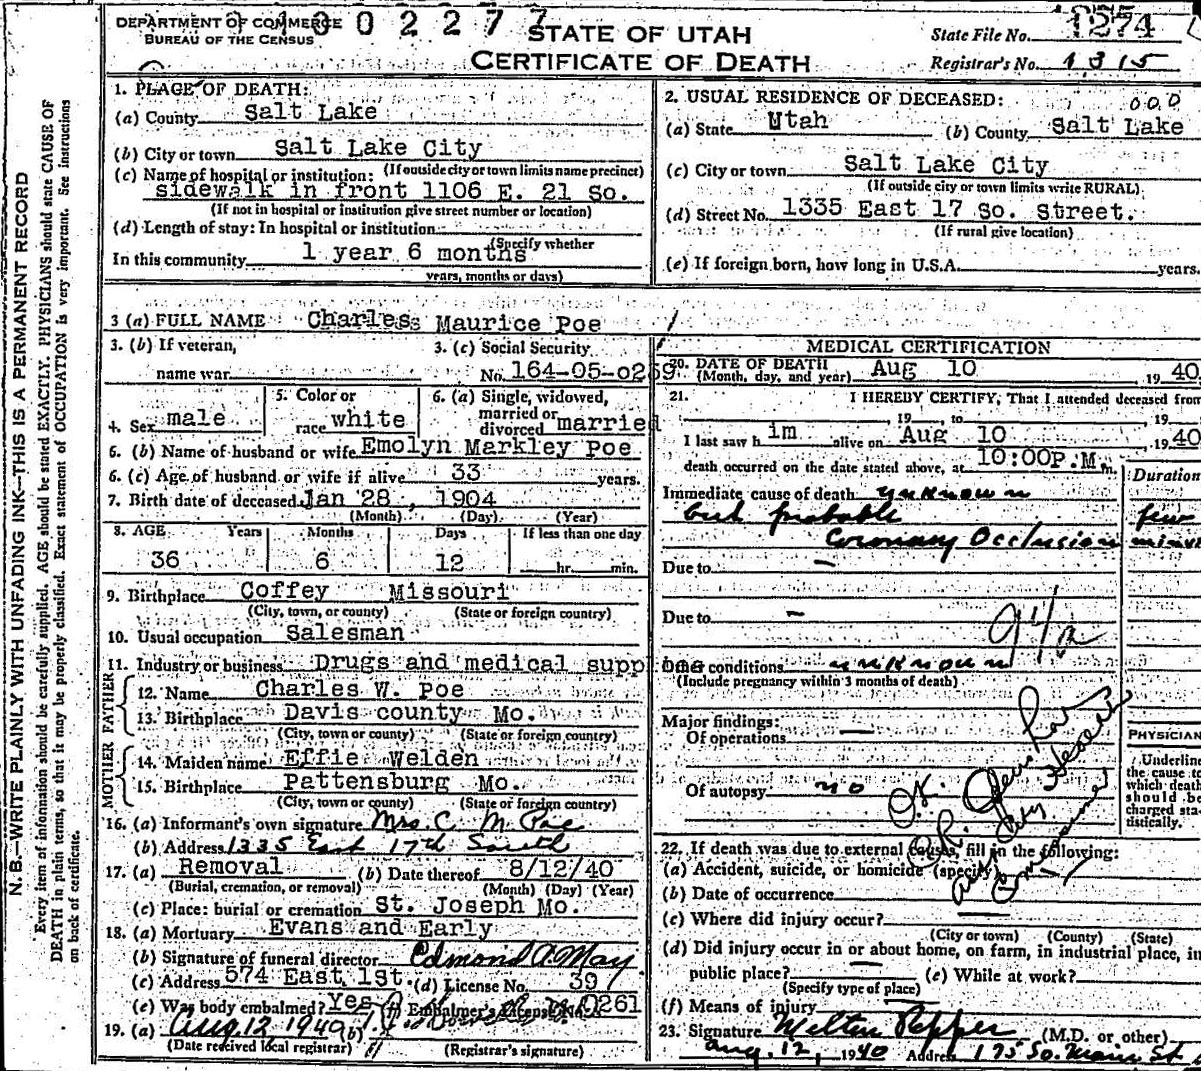 DEPARTMENT OF COMMERCE
BUREAU OF THE CENSUS
STATE OF UTAH
CERTIFICATE OF DEATH
State File No. 1274
Registrar's No. 1315
N. B.—WRITE PLAINLY WITH UNFADING INK—THIS IS A PERMANENT RECORD
Every item of information should be carefully supplied. AGE should be stated EXACTLY. PHYSICIANS should state CAUSE OF
DEATH in plain terms, so that it may be properly classified. Exact statement of OCCUPATION is very important. See instructions
on back of certificate.
1. PLACE OF DEATH:
(a) County Salt Lake
(b) City or town Salt Lake City
(If outside city or town limits name precinct)
(c) Name of hospital or institution:
sidewalk in front 1106 E. 21 So.
(If not in hospital or institution give street number or location)
(d) Length of stay: In hospital or institution
(Specify whether
In this community 1 year 6 months
years, months or days)
2. USUAL RESIDENCE OF DECEASED: 000
(a) State Utah (b) County Salt Lake
(c) City or town Salt Lake City
(If outside city or town limits write RURAL)
(d) Street No. 1335 East 17 So. Street.
(If rural give location)
(e) If foreign born, how long in U.S.A. years.
3 (a) FULL NAME Charles Maurice Poe
3. (b) If veteran,
name war
3. (c) Social Security
No. 164-05-0259
4. Sex male
5. Color or
race white
6. (a) Single, widowed,
married or
divorced married
6. (b) Name of husband or wife Emolyn Markley Poe
6. (c) Age of husband or wife if alive 33 years.
7. Birth date of deceased Jan 28, 1904
(Month) (Day) (Year)
8. AGE Years Months Days If less than one day
36 6 12 hr. min.
9. Birthplace Coffey Missouri
(City, town, or county) (State or foreign country)
10. Usual occupation Salesman
11. Industry or business Drugs and medical supp
FATHER
12. Name Charles W. Poe
13. Birthplace Davis county Mo.
(City, town or county) (State or foreign country)
MOTHER
14. Maiden name Effie Welden
15. Birthplace Pattensburg Mo.
(City, town or county) (State or foreign country)
16. (a) Informant's own signature Mrs C M Poe
(b) Address 1335 East 17th South
17. (a) Removal (b) Date thereof 8/12/40
(Burial, cremation, or removal) (Month) (Day) (Year)
(c) Place: burial or cremation St. Joseph Mo.
18. (a) Mortuary Evans and Early
(b) Signature of funeral director Edmond A. May
(c) Address 574 East 1st. (d) License No. 397
(e) Was body embalmed? Yes (f) Embalmer's License No. 0261
19. (a) Aug 12 1940 (b)
(Date received local registrar) (Registrar's signature)
MEDICAL CERTIFICATION
20. DATE OF DEATH
(Month, day, and year) Aug 10, 1940
21. I HEREBY CERTIFY, That I attended deceased from
, 19 , to , 19
I last saw him alive on Aug 10, 1940
death occurred on the date stated above, at 10:00P.M. m.
Duration
Immediate cause of death unknown
but probable few
Coronary Occlusion
Due to —
Due to —
Other conditions unknown
(Include pregnancy within 3 months of death)
Major findings:
Of operations —
Of autopsy no
PHYSICIAN
Underline
the cause to
which death
should be
charged sta-
tistically.
O.K.
22. If death was due to external causes, fill in the following:
(a) Accident, suicide, or homicide (specify)
(b) Date of occurrence
(c) Where did injury occur?
(City or town) (County) (State)
(d) Did injury occur in or about home, on farm, in industrial place, in
public place? (e) While at work?
(Specify type of place)
(f) Means of injury
23. Signature Milton Pepper (M.D. or other)
Aug. 12, 1940 Address 175 So. Main St